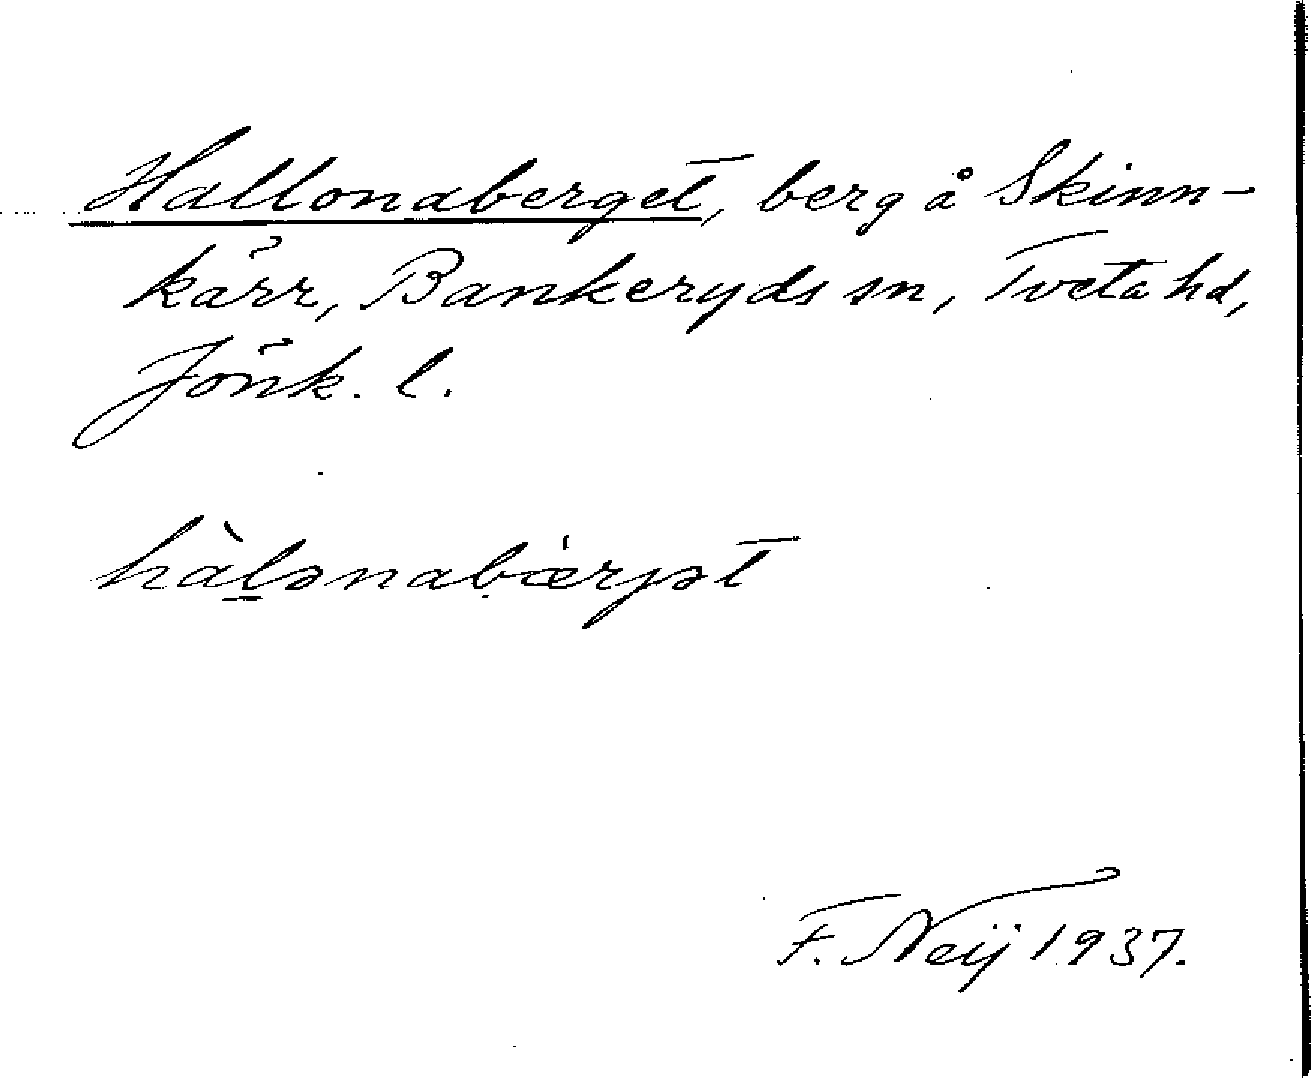 Hallonaberget, berg å Skinn-
kärr, Bankeryds sn, Tveta hd,
Jönk. l.
hàl̠ənabæ̇rjət
F. Neij 1937.